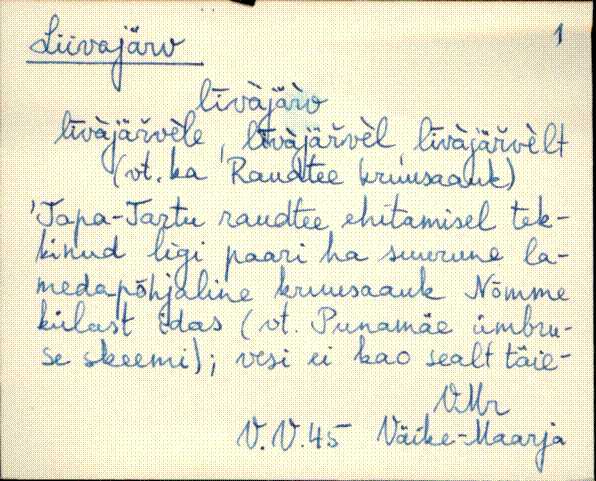 Liivajärv 1
līvàjä̀rv
līvàjäřvèle, līvàjäřvèl, līvàjäřvèlt
(vt. ka Raudtee kruusaauk)
'Tapa-Tartu raudtee ehitamisel tek-
kinud ligi paari ha suurune la-
medapõhjaline kruusaauk Nõmme
külast idas (vt. Punamäe ümbru-
se skeemi); vesi ei kao sealt täie-
VMr
V.V.45 Väike-Maarja